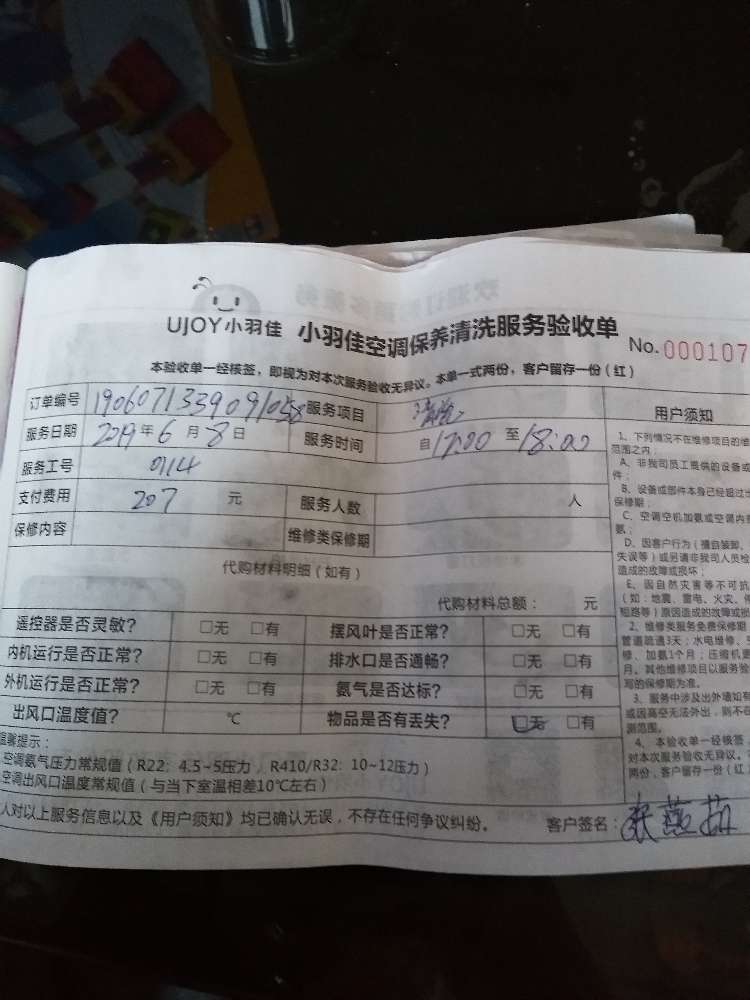 UJOY小羽佳 小羽佳空调保养清洗服务验收单 No.000107
本验收单一经核签，即视为对本次服务验收无异议。本单一式两份，客户留存一份（红）
订单编号 1906071339091058 服务项目 清洗
服务日期 2019年6月8日 服务时间 自17:00至18:00
服务工号 0114
支付费用 207 元 服务人数 人
保修内容 维修类保修期
代购材料明细（如有）
代购材料总额： 元
遥控器是否灵敏？ □无 □有 摆风叶是否正常？ □无 □有
内机运行是否正常？ □无 □有 排水口是否通畅？ □无 □有
外机运行是否正常？ □无 □有 氨气是否达标？ □无 □有
出风口温度值？ ℃ 物品是否有丢失？ □无 □有
温馨提示：
空调氨气压力常规值（R22：4.5~5压力，R410/R32：10~12压力）
空调出风口温度常规值（与当下室温相差10℃左右）
人对以上服务信息以及《用户须知》均已确认无误，不存在任何争议纠纷。 客户签名：张燕茹
用户须知
1、下列情况不在维修项目的维
范围之内：
A、非我司员工提供的设备或
件；
B、设备或部件本身已经超过
保修期；
C、空调空机加氨或空调内
氨；
D、因客户行为（擅自装卸、
失误等）或另请非我司人员检
造成的故障或损坏；
E、因自然灾害等不可抗
（如：地震、雷电、火灾、
短路等）原因造成的故障或损
2、维修类服务免费保修期
管道疏通3天；水电维修、
修、加氨1个月；压缩机更
月。其他维修项目以服务验
写的保修期为准。
3、服务中涉及出外墙如有
或因高空无法外出，则不在
测范围。
4、本验收单一经核签，
对本次服务验收无异议。
两份，客户留存一份（红